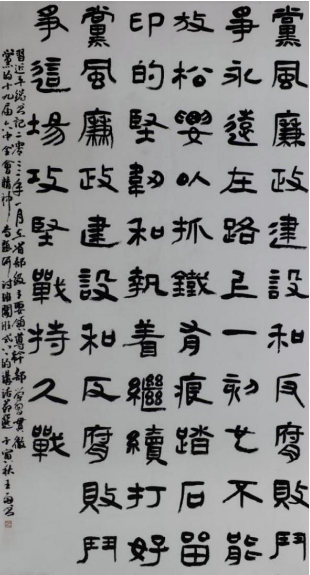 黨風廉政建設和反腐敗鬥
爭永遠在路上一刻也不能
放松要以抓鐵有痕踏石留
印的堅韌和執着繼續打好
黨風廉政建設和反腐敗鬥
爭這場攻堅戰持久戰
習近平總書記二零二二年一月在省部級主要領導幹部學習貫徹
黨的十九屆六中全會精神專題研討班開班式上的講話節選 壬寅秋王